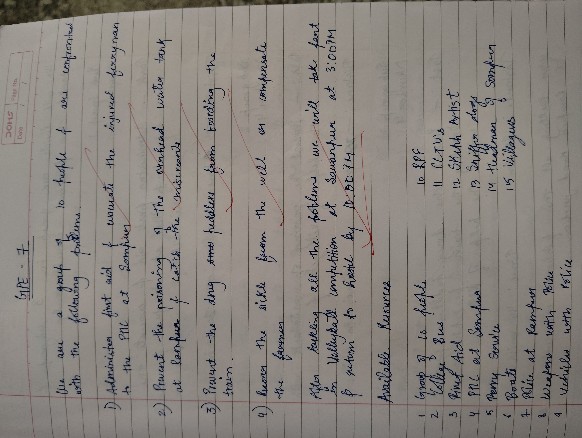 GPE - 7
We are a group of 10 people & are confronted
with the following problems.
1) Administer first aid & evacuate the injured ferryman
to the PHC at Sampur
2) Prevent the poisoning of the overhead water tank
at Rampur & catch the miscreants
3) Prevent the drug peddlers from boarding the
train.
4) Recover the sickle from the well or compensate
the farmer
After tackling all the problems we will take part
in Volleyball competition at Sewanpur at 3:00PM
& return to hostel by
Available Resources
1 Group of 10 people
2 College Bus
3 First Aid
4 PHC at Sampur
5 Ferry Service
6 Boats
7 Police at Rampur
8 Weapons with Police
9 Vehicles with Police
10 RPF
11 CCTV's
12 Sketch Artist
13 Sniffer dogs
14 Headman of Sampur
15 Villagers